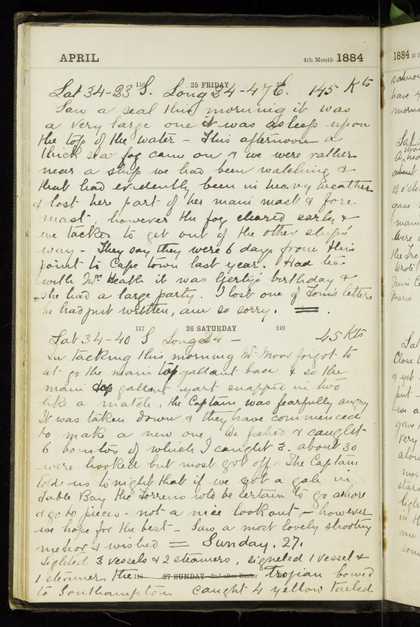 APRIL 4th Month 1884
25 FRIDAY
Lat 34-23 S. Long 34-47 E. 145 Kts
Saw a seal this morning it was
a very large one it was asleep upon
the top of the water - This afternoon a
thick sea fog came on & we were rather
near a ship we had been watching &
that had evidently been in heavy weather
& lost her part of her main mast & fore
mast, however the fog cleared early, &
we tacked to get out of the other ship's
way - They say they were 6 days from this
point to Cape town last year. Had tea
with Mrs Heath it was Gertie's birthday &
she had a large party. I lost one of Tom's letters
he had just written, am so sorry.
26 SATURDAY
Lat 34-40 S Long - 45 Kts
In tacking this morning Mr Moor forgot to
let go the main top gallant & so the
main top gallant yart snapped in two
like a match, the Captain was fearfully angry
It was taken down & they have commenced
to make a new one, We fished & caught
6 bonitos of which I caught 3. about 30
were hooked but most got off. The Captain
told us tonight that if we got a gale in
Table Bay the Torrens wld be certain to go ashore
& go to pieces - not a nice lookout - however
we hope for the best - Saw a most lovely shooting
meteor & wished = Sunday. 27.
Sighted 3 vessels & 2 steamers, signalled 1 vessel &
1 steamer, the 27 SUNDAY Trojan bound
to Southampton caught 4 yellow tailed
1884